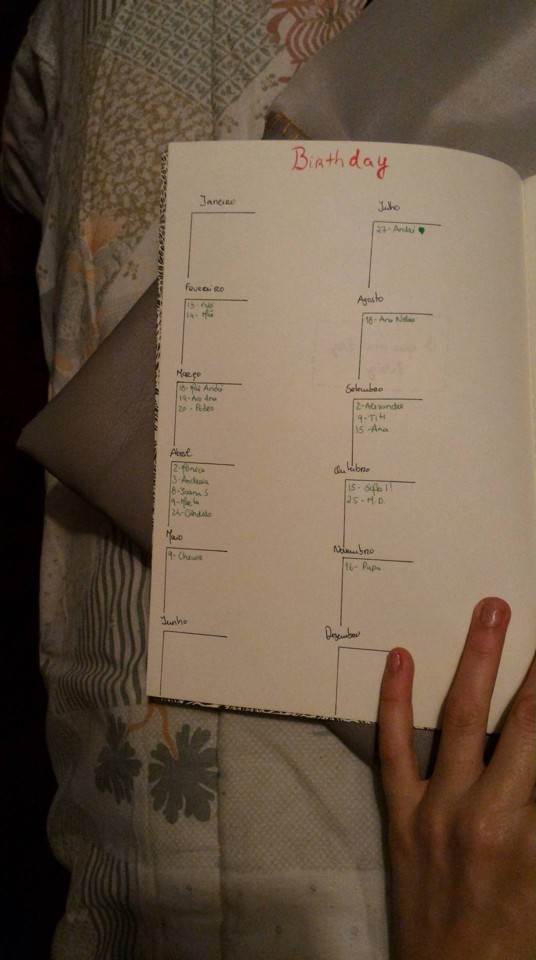 Birthday
Janeiro
Fevereiro
13- Avó
14- Mãe
Março
18- Mãe André
19- Avó Ana
20 - Pedro
Abril
2- Mónica
3- Andreia
8- Joana S
9- Marta
24- Cândido
Maio
9-
Junho
Julho
27- André
Agosto
18- Ana
Setembro
2- Alexandra
9- Titi
15- Ana
Outubro
15- Sofia
25 - M.D.
Novembro
16- Papa
Dezembro